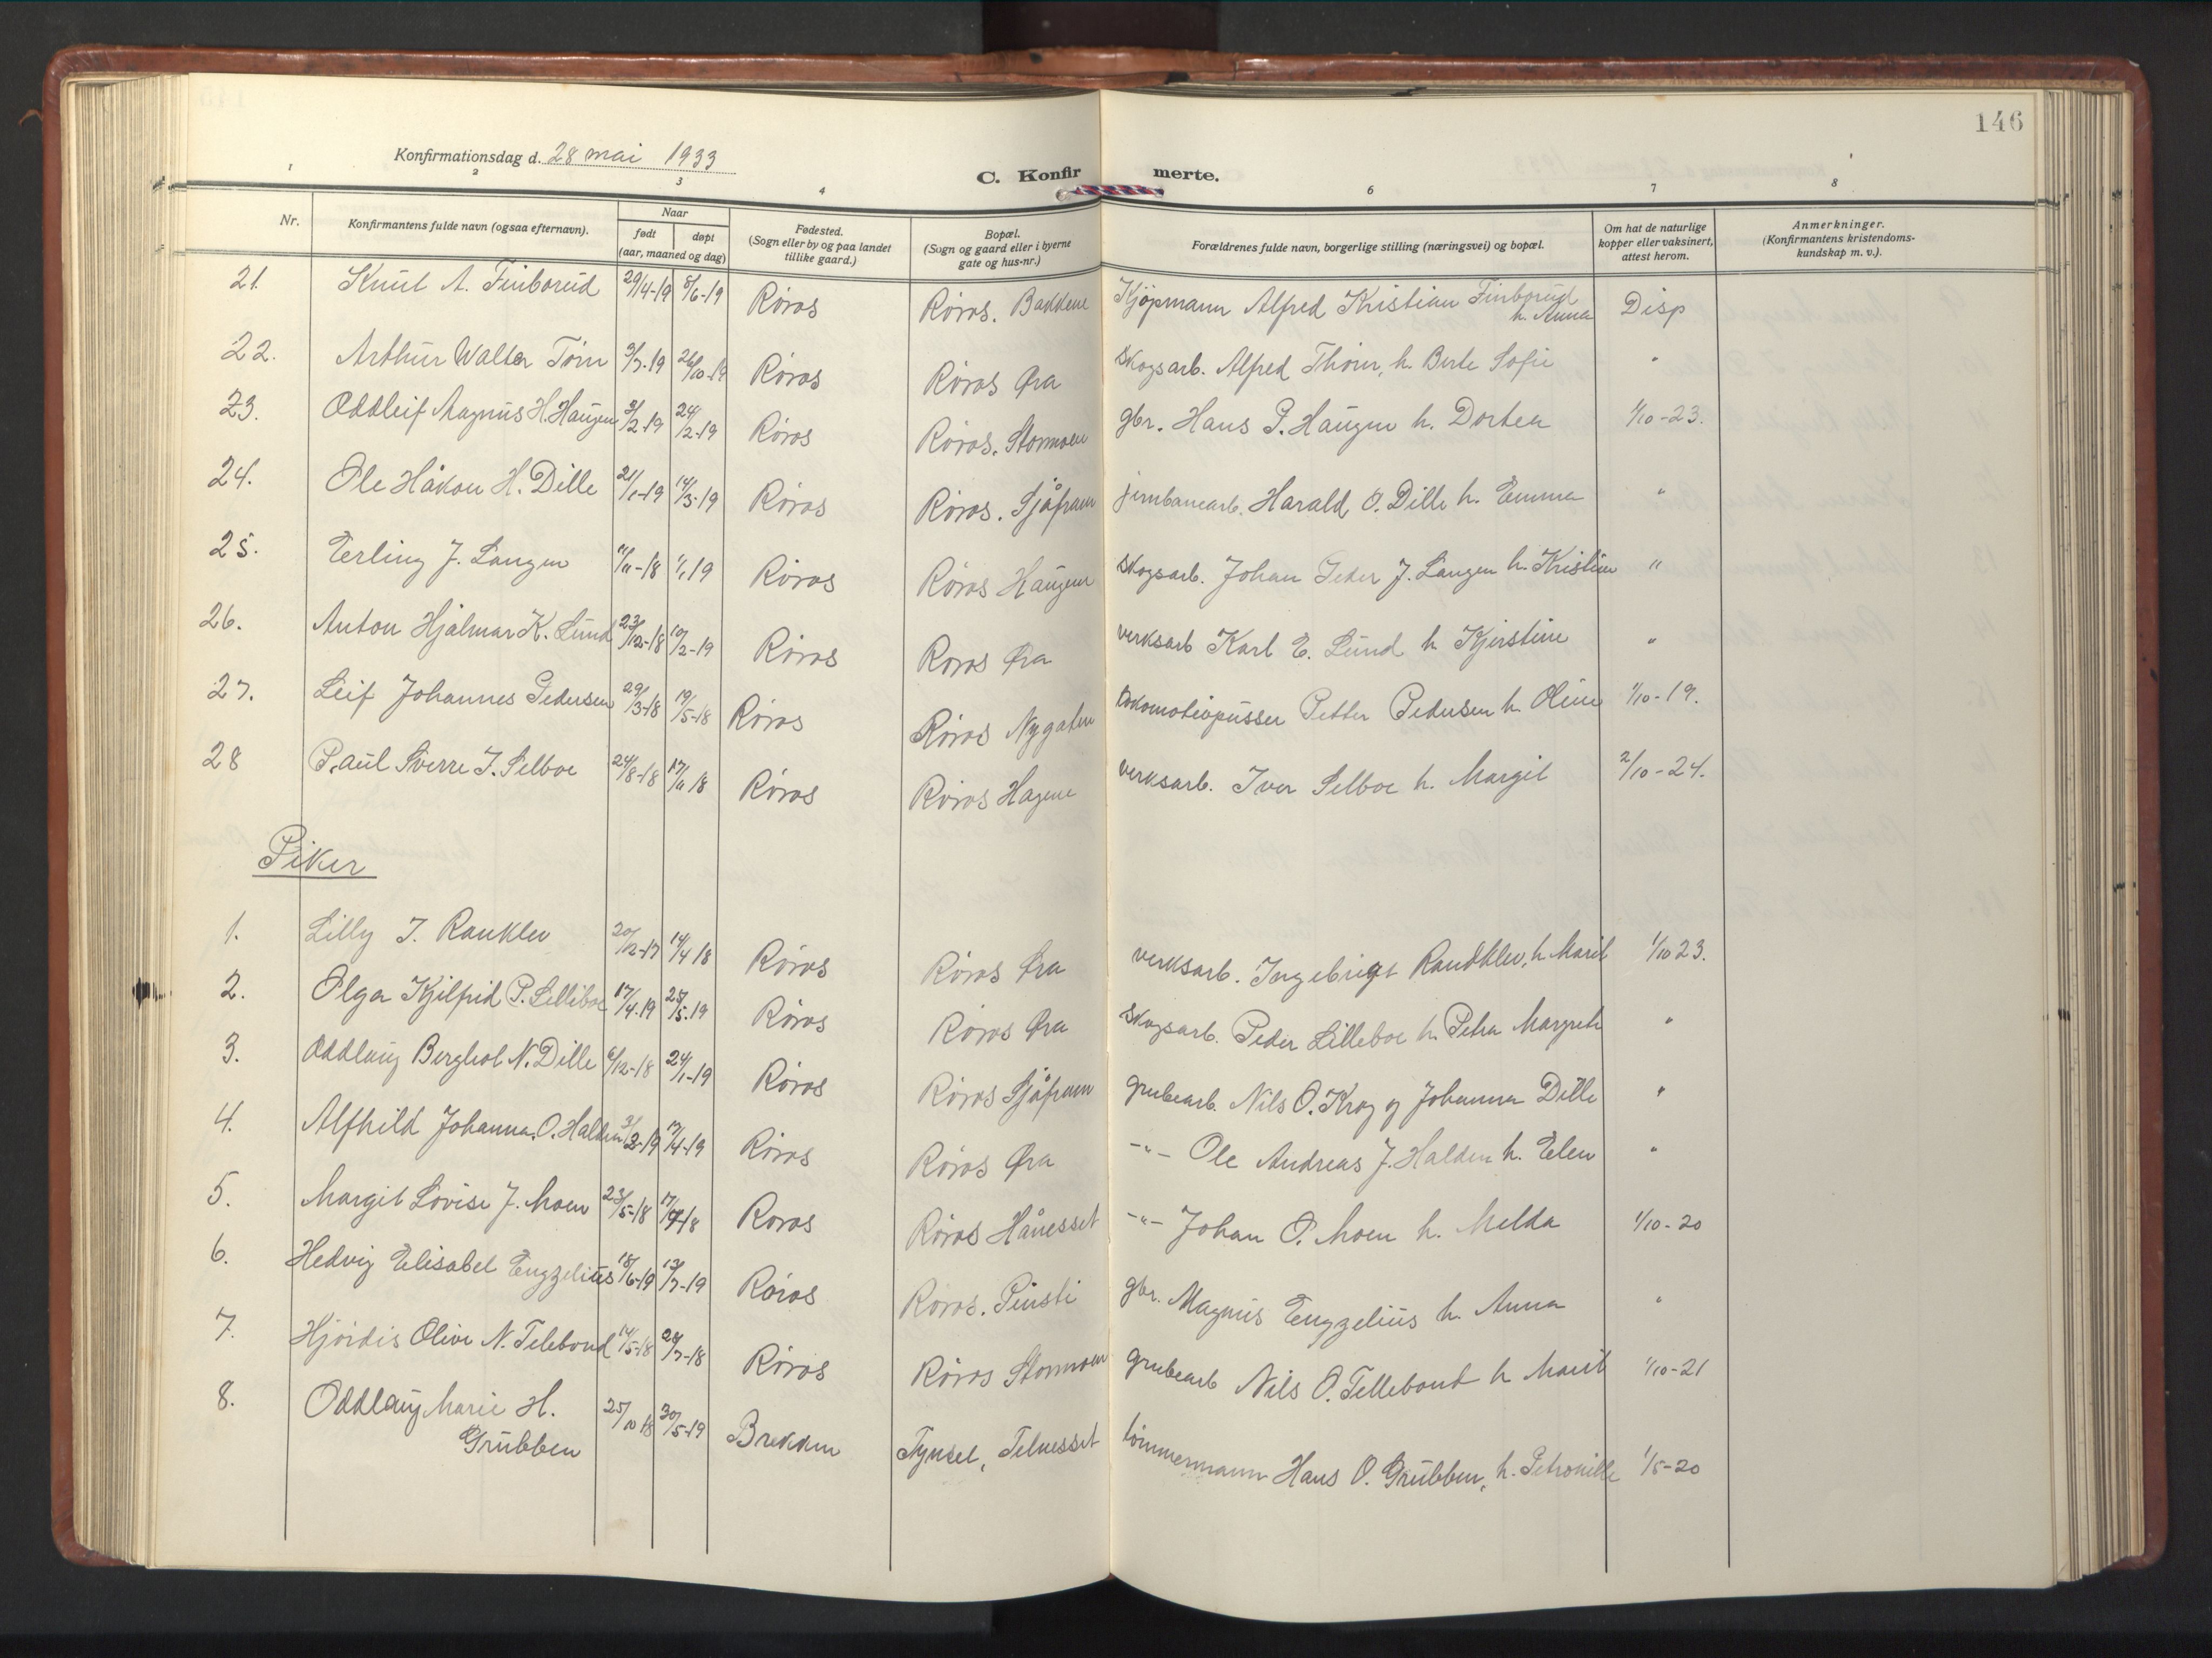 146
Konfirmationsdag d. 28 mai 1933
C. Konfirmerte.
1 2 3 4 6 7 8
Nr. Konfirmantens fulde navn (ogsaa efternavn). Naar født døpt (aar, maaned og dag) Fødested. (Sogn eller by og paa landet tillike gaard.) Bopæl. (Sogn og gaard eller i byerne gate og hus-nr.) Forældrenes fulde navn, borgerlige stilling (næringsvei) og bopæl. Om hat de naturlige kopper eller vaksinert, attest herom. Anmerkninger. (Konfirmantens kristendomskundskap m. v.).
21. Knut A. Finborud 29/4-19 8/6-19 Røros Røros. Bakkene Kjøpmann Alfred Kristian Finborud h. Anna Disp
22. Arthur Walter Törn 3/7-19 26/10-19 Røros Røros Øra Skogsarb. Alfred Thörn, h. Berte Sofie "
23. Oddleif Magnus H. Haugen 2/2-19 24/2-19 Røros Røros. Stormoen gbr. Hans P. Haugen h. Dortea 1/10-23.
24. Ole Håkon H. Dille 21/1-19 14/3-19 Røros Røros. Sjåfram jernbanearb. Harald O. Dille h. Emma "
25. Erling J. Langen 11/11-18 1/1 19 Røros Røros Haugene Skogsarb. Johan Peder J. Langen h. Kristine "
26. Anton Hjalmar K. Lund 23/12-18 10/2-19 Røros Røros Øra verksarb Karl E. Lund h Kjerstine "
27. Leif Johannes Pedersen 29/3-18 19/5-18 Røros Røros Nygaten Lokomotivpusser Petter Pedersen h. Oline 1/10-19.
28 Paul Sverre I. Selboe 24/8-18 17/11 18 Røros Røros Hagene verksarb. Iver Selboe h. Margit 2/10-24.
Piker
1. Lilly I. Ranklev 20/12-17 14/4 18 Røros Røros Øra verksarb. Ingebrigt Randklev, h. Marit 1/10 23.
2. Olga Kjilfrid P. Lilleboe 17/4-19 25/5-19 Røros Røros Øra Skogsarb. Peder Lilleboe h. Petra Margrete "
3. Oddlaug Berghol N. Dille 6/12-18 24/1-19 Røros Røros Sjåfram grubearb. Nils O. Krog og Johanna Dille "
4. Alfhild Johanna O. Halden 3/2-19 17/4-19 Røros Røros Øra -"- Ole Andreas J. Halden h. Elen "
5. Margit Lovise J. Moen 23/5-18 17/7-18 Røros Røros Hånesset -"- Johan O. Moen h. Melda 1/10-20
6. Hedvig Elisabet Engzelius 18/6-19 13/7-19 Røros Røros. Pinsti gbr. Magnus Engzelius h. Anna "
7. Hjördis Olive N. Tellebond 14/5-18 24/7-18 Røros Røros Stormoen grubearb Nils O. Tellebond h Marit 1/10-21
8. Oddlaug Marie H. Grubben 25/10 18 30/5-19 Brekken Tynset, Telnesset tömmermann Hans O. Grubben, h. Petronille 1/5-20